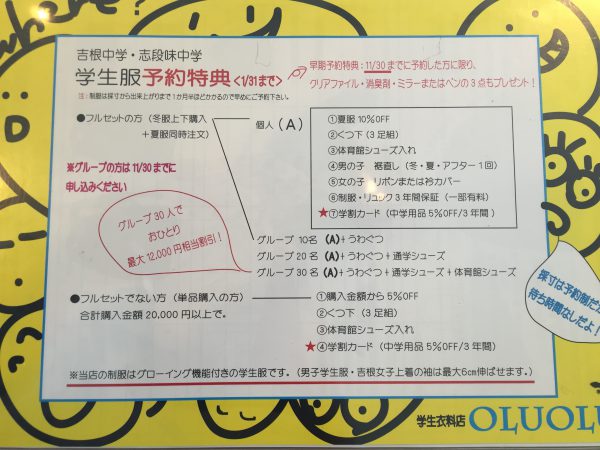 where?
吉根中学・志段味中学
学生服予約特典<1/31まで>
注：制服は採寸から出来上がりまで1か月半ほどかかるので早めにご予約下さい。
早期予約特典：11/30までに予約した方に限り、
クリアファイル・消臭剤・ミラーまたはペンの3点もプレゼント！
●フルセットの方（冬服上下購入
＋夏服同時注文）
個人（A）
①夏服10%OFF
②くつ下（3足組）
③体育館シューズ入れ
④男の子 裾直し（冬・夏・アフター1回）
⑤女の子 リボンまたは衿カバー
⑥制服・リュック3年間保証（一部有料）
★⑦学割カード（中学用品5%OFF/3年間）
※グループの方は11/30までに
申し込みください
グループ30人で
おひとり
最大12,000円相当割引！
グループ10名（A）+うわぐつ
グループ20名（A）+うわぐつ+通学シューズ
グループ30名（A）+うわぐつ+通学シューズ+体育館シューズ
●フルセットでない方（単品購入の方）
合計購入金額20,000円以上で。
①購入金額から5%OFF
②くつ下（3足組）
③体育館シューズ入れ
★④学割カード（中学用品5%OFF/3年間）
採寸は予約制だか
待ち時間なしだよ！
※当店の制服はグローイング機能付きの学生服です。（男子学生服・吉根女子上着の袖は最大6cm伸ばせます。）
学生衣料店 OLUOLU